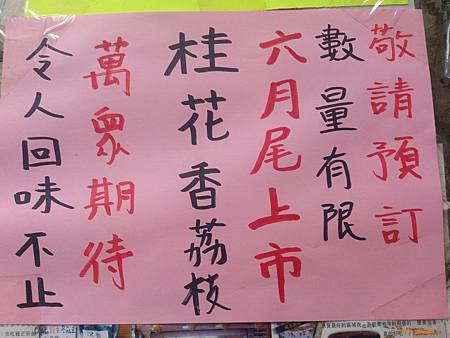 令人回味不止
萬眾期待
桂花香荔枝
六月尾上市
數量有限
敬請預訂